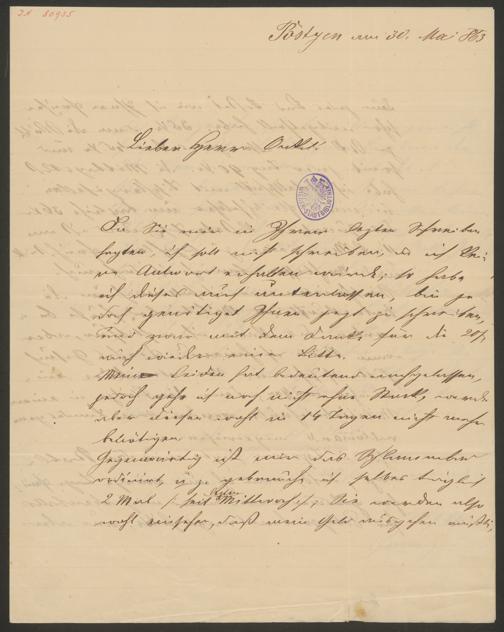 IN 80955
Pöstyen am 30. Mai 863
Lieber Herr Onkel!
Da Sie mir in Ihrem letzten Schreiben
sagten, ich soll nicht schreiben, da ich kei-
ne Antwort erhalten würde; so habe
ich dieses auch unterlassen, bin je-
doch genötiget Ihnen jetzt zu schreiben,
und zwar mit dem Dank für die 20 f
auch wieder eine Bitte.
Mein Leiden hat bedeutend nachgelassen,
jedoch gehe ich noch nicht ohne Stock, werde
aber diesen wohl in 14 Tagen nicht mehr
benötigen.
Gegenwärtig ist mir das Schlammbad
ordinirt, u. gebrauche ich selbes täglich
2 Mal /: seit Mittwoch :/; Sie werden also
wohl einsehen, daß mein Geld ausgehen mußte,